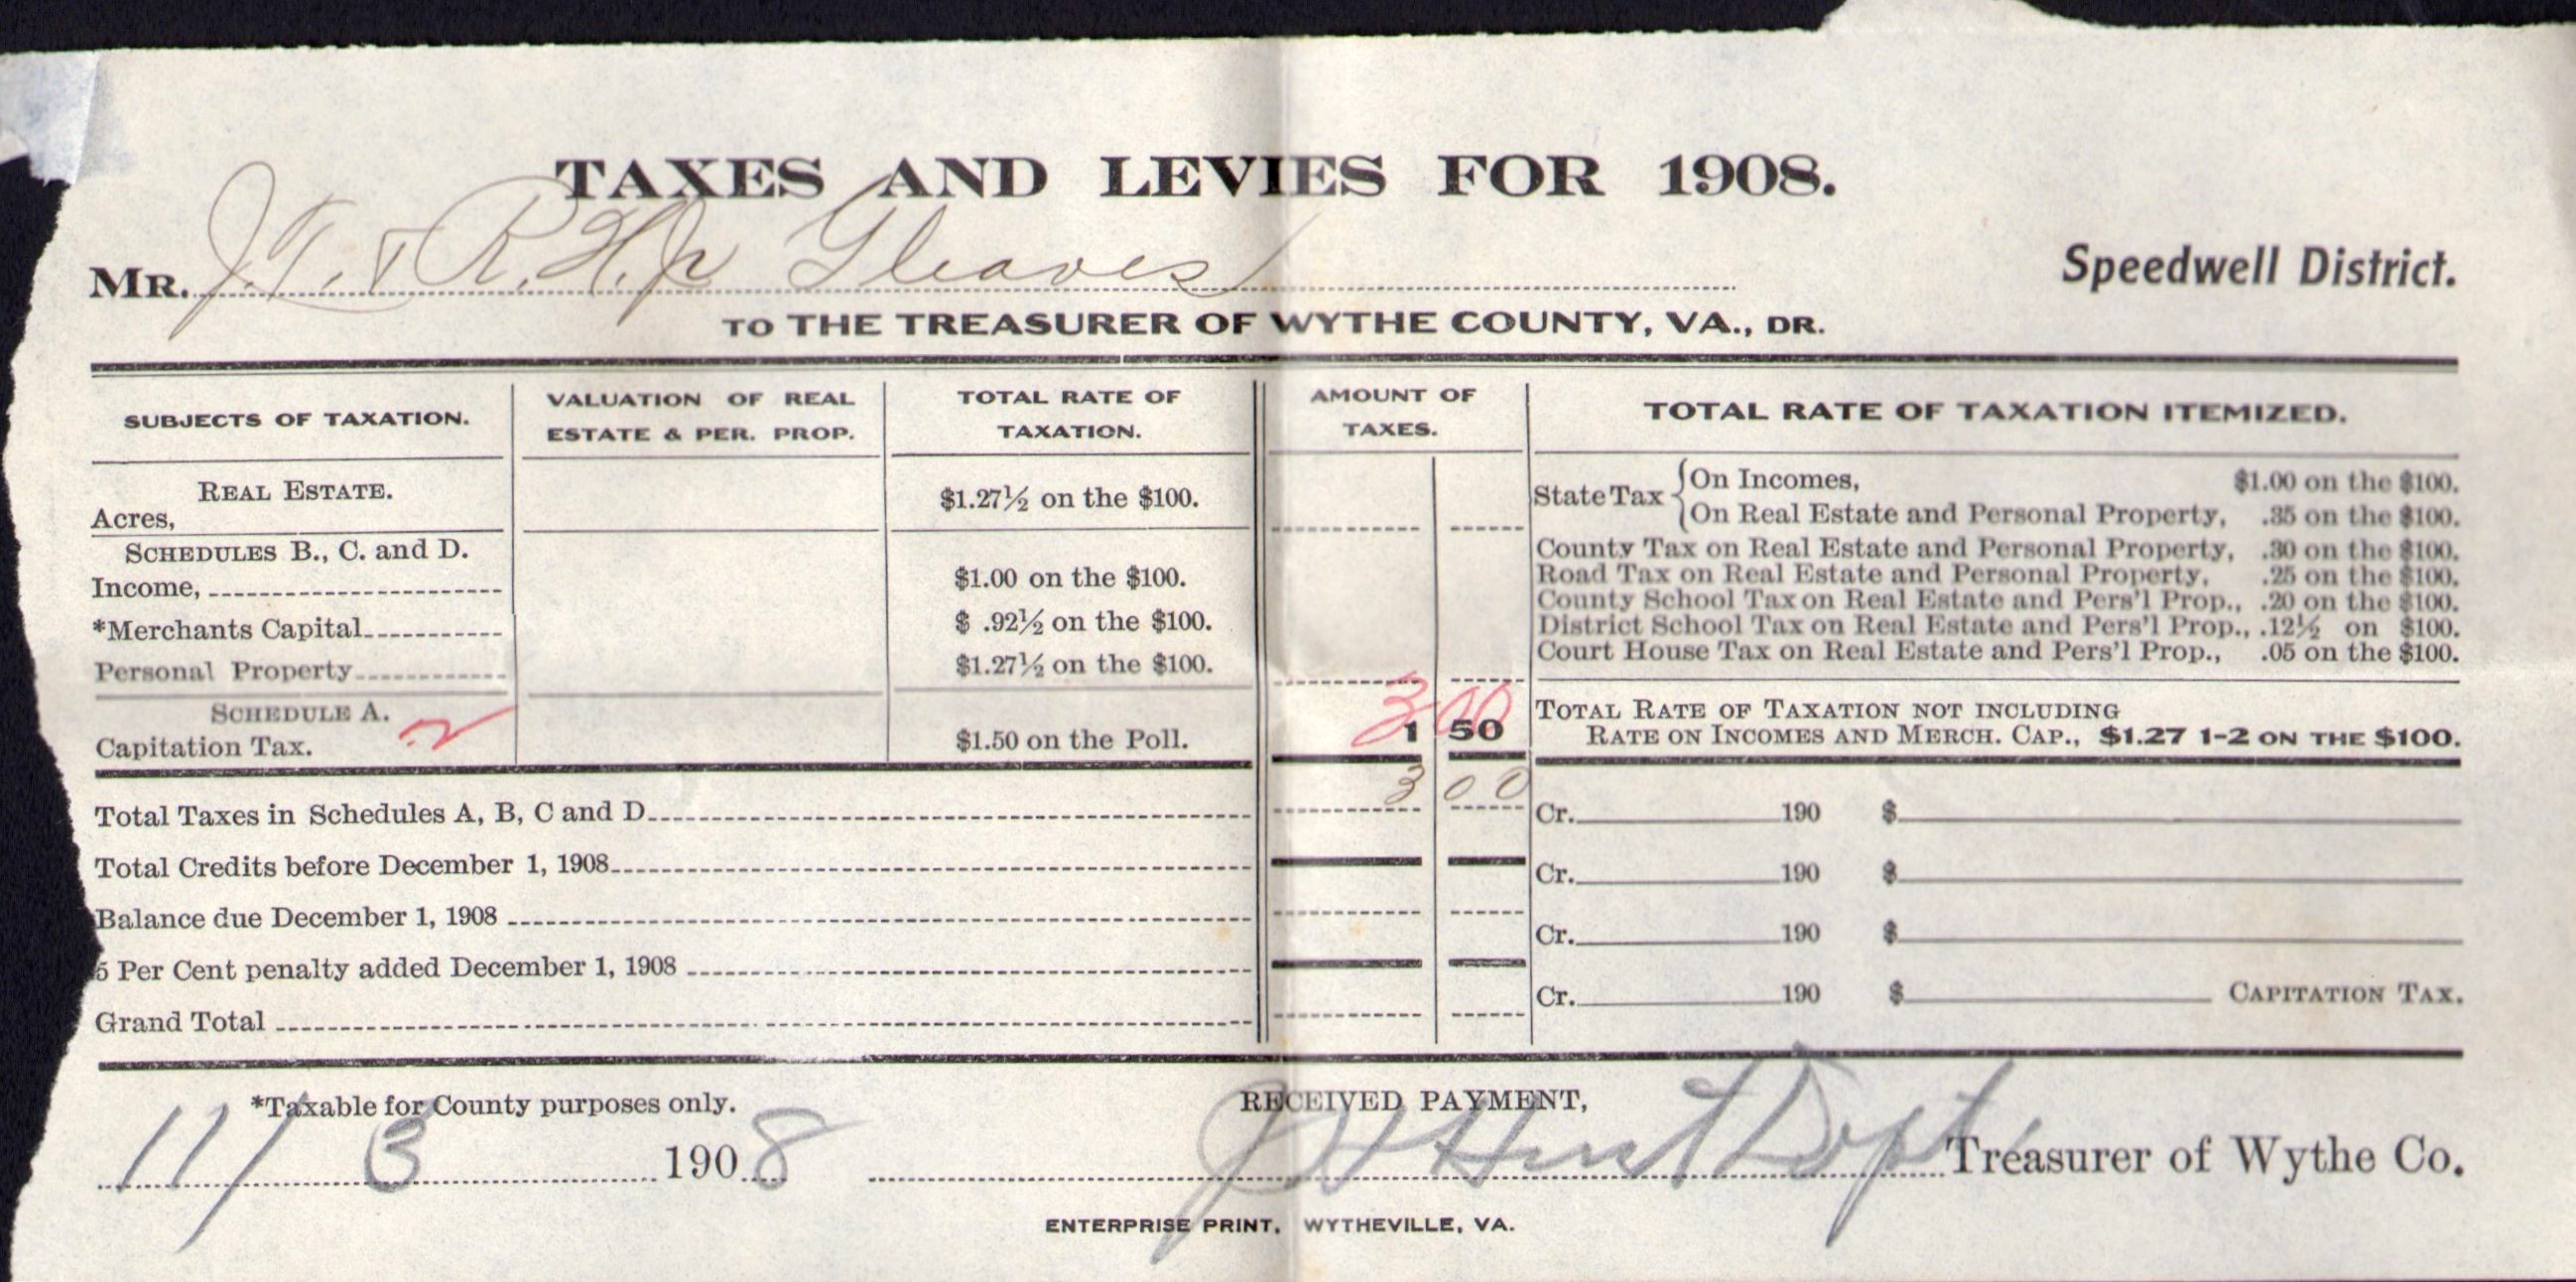 TAXES AND LEVIES FOR 1908.
MR. J.T. & R.H.Jr Gleaves
Speedwell District.
TO THE TREASURER OF WYTHE COUNTY, VA., DR.
SUBJECTS OF TAXATION.
VALUATION OF REAL
ESTATE & PER. PROP.
TOTAL RATE OF
TAXATION.
AMOUNT OF
TAXES.
TOTAL RATE OF TAXATION ITEMIZED.
REAL ESTATE.
Acres,
$1.27½ on the $100.
SCHEDULES B., C. and D.
Income,
$1.00 on the $100.
*Merchants Capital
$ .92½ on the $100.
Personal Property
$1.27½ on the $100.
SCHEDULE A.
Capitation Tax. 2
$1.50 on the Poll.
3 00
1 50
State Tax
On Incomes, $1.00 on the $100.
On Real Estate and Personal Property, .35 on the $100.
County Tax on Real Estate and Personal Property, .30 on the $100.
Road Tax on Real Estate and Personal Property, .25 on the $100.
County School Tax on Real Estate and Pers'l Prop., .20 on the $100.
District School Tax on Real Estate and Pers'l Prop., .12½ on $100.
Court House Tax on Real Estate and Pers'l Prop., .05 on the $100.
TOTAL RATE OF TAXATION NOT INCLUDING
RATE ON INCOMES AND MERCH. CAP., $1.27 1-2 ON THE $100.
Total Taxes in Schedules A, B, C and D 3 00
Total Credits before December 1, 1908
Balance due December 1, 1908
5 Per Cent penalty added December 1, 1908
Grand Total
Cr. 190 $
Cr. 190 $
Cr. 190 $
Cr. 190 $ CAPITATION TAX.
*Taxable for County purposes only.
RECEIVED PAYMENT,
11/3 1908
Treasurer of Wythe Co.
ENTERPRISE PRINT, WYTHEVILLE, VA.